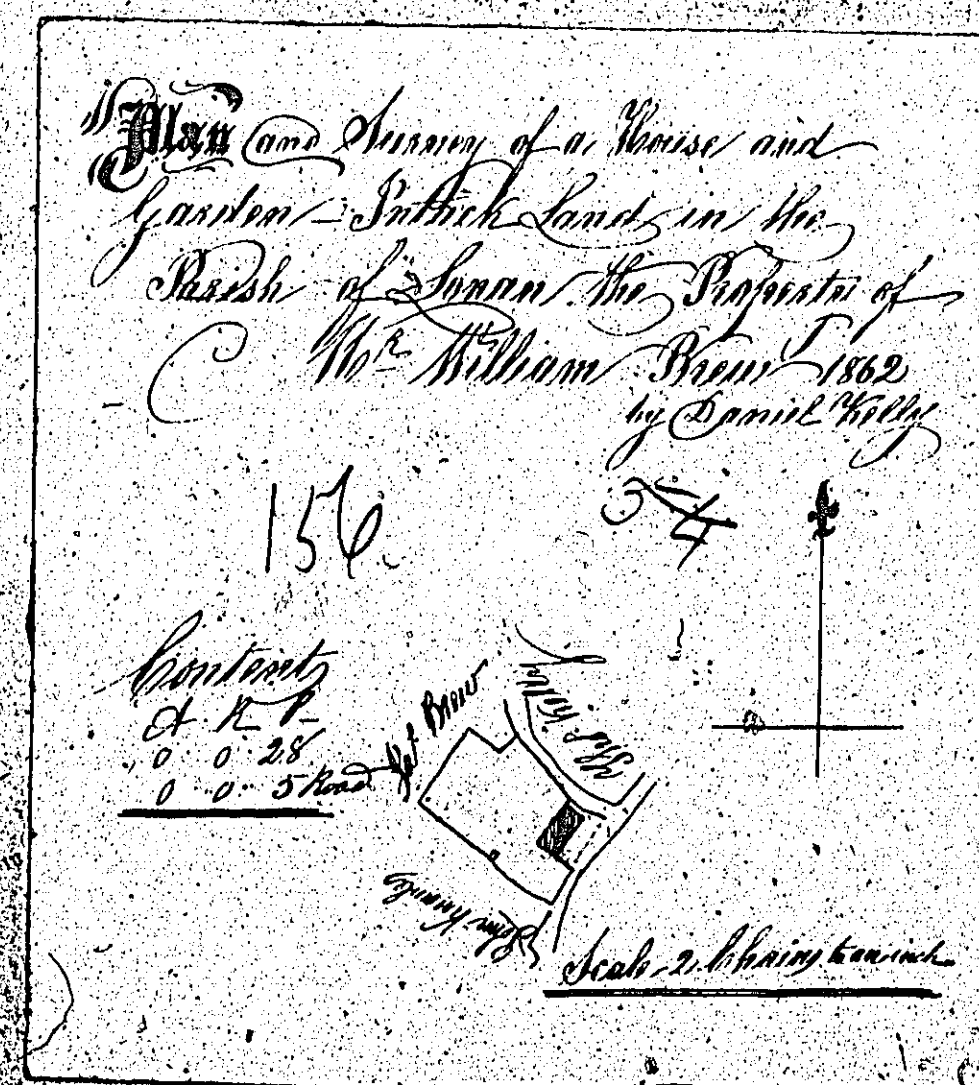 Plan and Survey of a House and
Garden - Intack Land in the
Parish of Lonan the Property of
Mr William Brew 1862
by Daniel Kelly
156
Contents
A R P
0 0 28
0 0 5 Road
Brew
Kelly
John
Scale 2 Chains to an inch